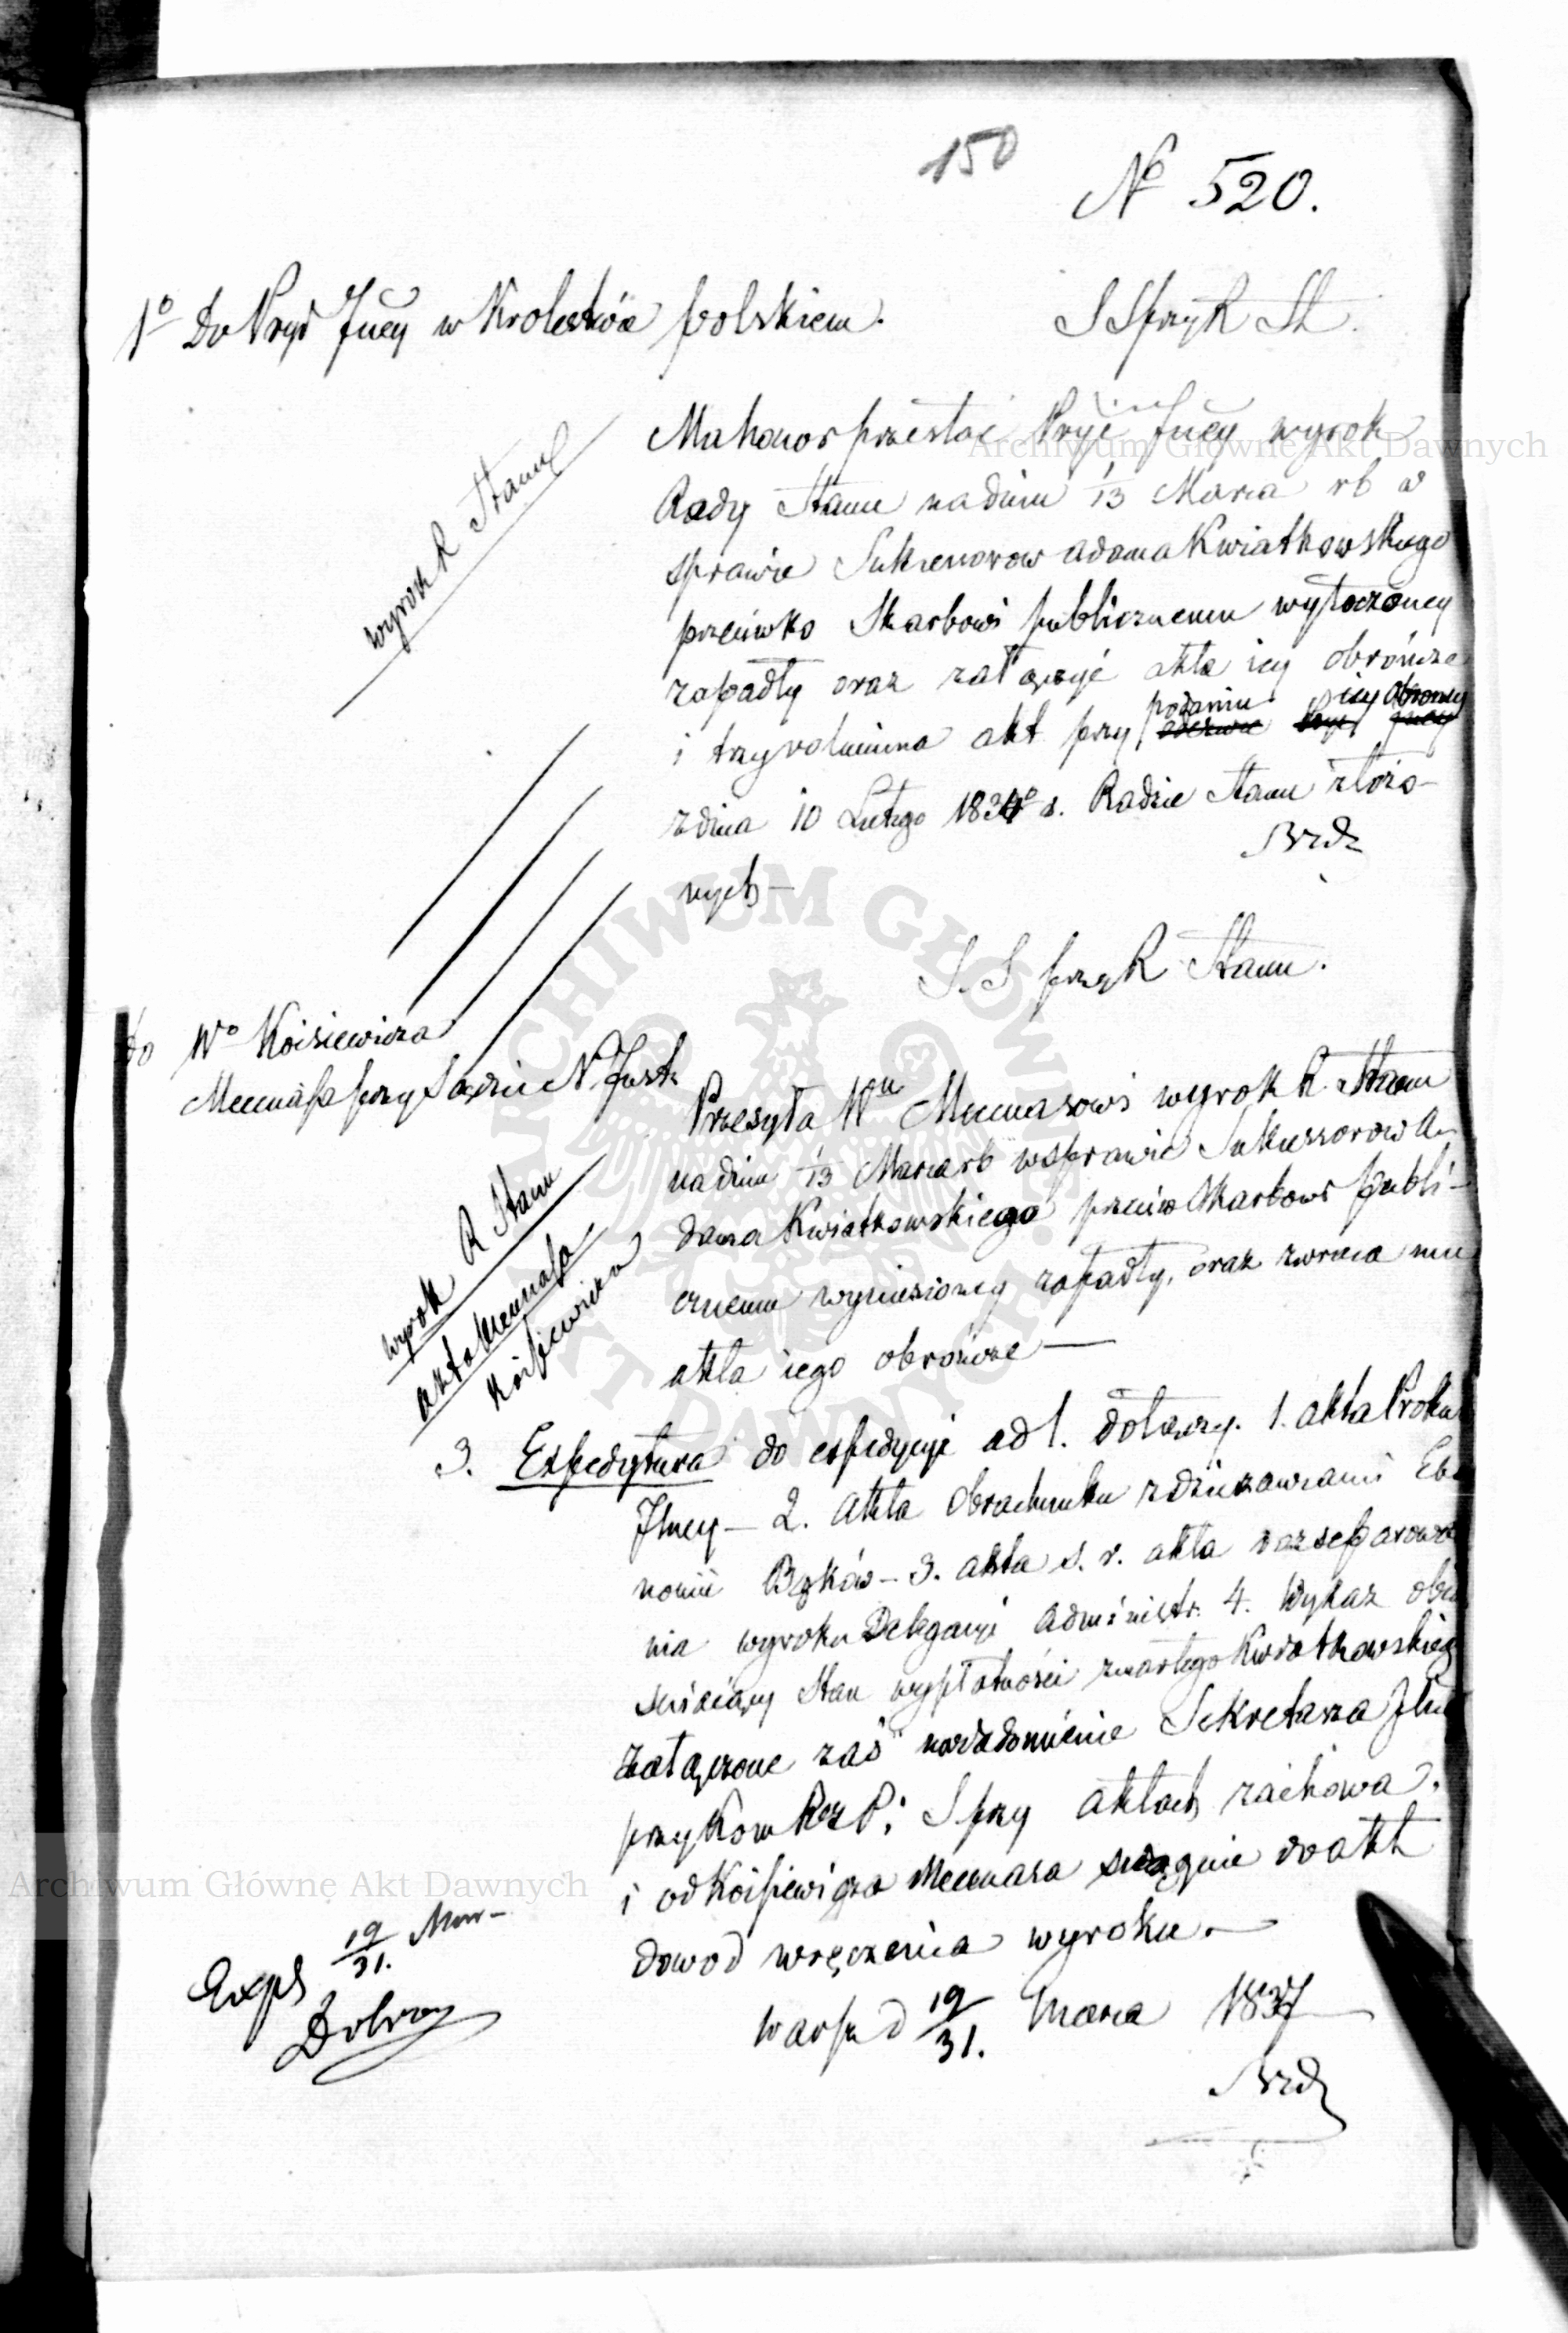 150
Nº 520.
1º Do Proś Jney w Krolestwie polskiem.
S S przy R St.
wyrok R Stanu
Ma honor przesłać Pryi Jney wyrok
Rady Stanu na dniu 1/13 Marca rb w
sprawie Sukcessorow Adama Kwiatkowskiego
przeciwko Skarbowi publicznemu wytoczoney
zapadły oraz załączyć akta iey obrończe
i trzy volumina akt przy podaniu iey obrony
z dnia 10 Lutego 183 r. Radzie Stanu złożo-
nych —
Brdz
S. S przy R Stanu.
do Wº Koisiewicza
Mecenasa przy Sądzie N Jnst.
wyrok R Stanu
akta Mecenasa
Koisiewicza
Przesyła Wmu Mecenasowi wyrok R. Stanu
na dniu 1/13 Marca rb w sprawie Sukcessorow A-
dama Kwiatkowskiego przeciw Skarbowi publi-
cznemu wyniesioney zapadły, oraz zwraca mu
akta iego obrończe —
3. Expedytura do expedycyi ad 1. dołączy. 1. akta Proku
Jlney — 2. Akta Obrachunku z dzierżawcami Eko
nomii Bąków — 3. akta s. r. akta
nia wyroku Delegacyi Administr. 4. Wykaz obia
śniaiący Stan wypłatności zmarłego Kwiatkowskieg
załączone zaś zawiadomienie Sekretarza Jlne
przy Kom Rz P. i S przy aktach zachowa.
i od Koisiewicza Mecenasa ściągnie do akt
dowod wręczenia wyroku. —
Warsz d 19/31. Marca 1837
Brdz
Expd 19/31. Mar-
Dobro
Archiwum Główne Akt Dawnych
Archiwum Główne Akt Dawnych
ARCHIWUM GŁÓWNE AKT DAWNYCH